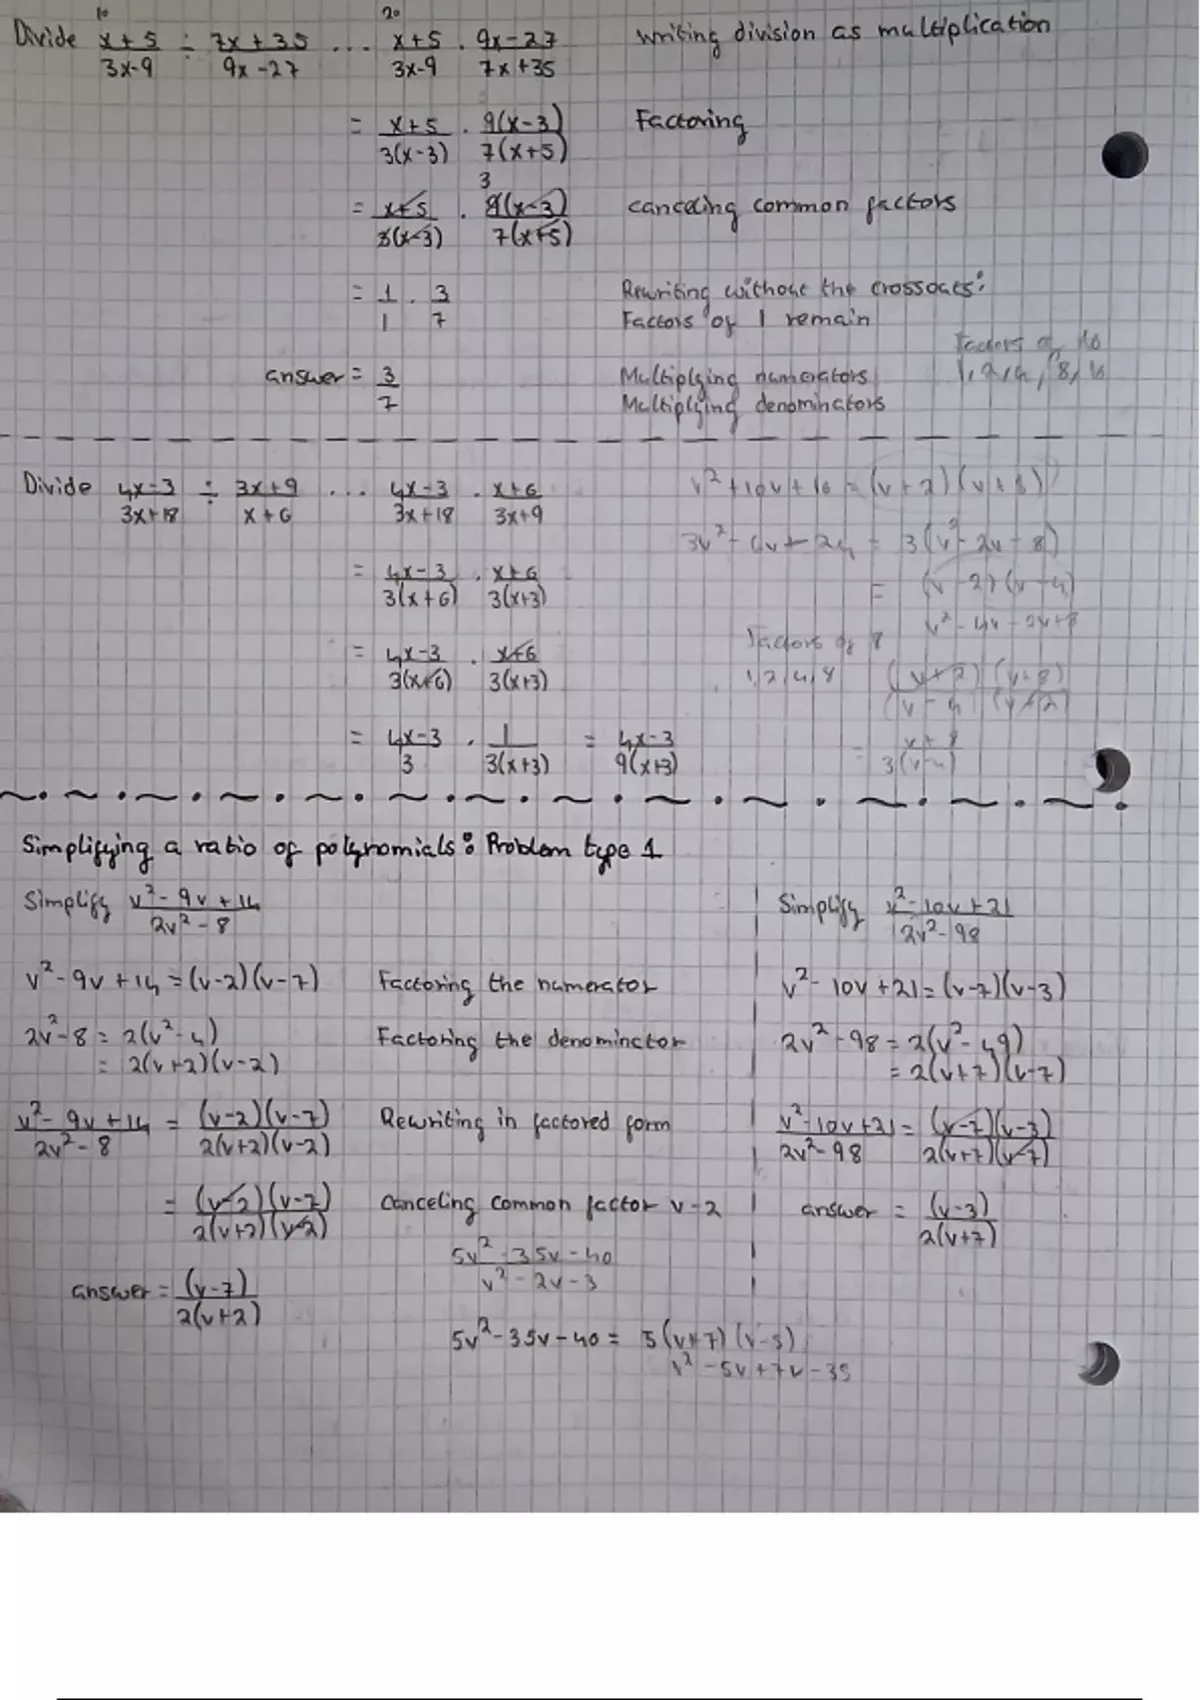 10 20
Divide x+5/3x-9 ÷ 7x+35/9x-27 ... x+5/3x-9 · 9x-27/7x+35 writing division as multiplication
= x+5/3(x-3) · 9(x-3)/7(x+5) Factoring
3
= x+5/3(x-3) · 9(x-3)/7(x+5) canceling common factors
= 1/1 · 3/7 Rewriting without the crossouts:
Factors of 1 remain
Factors of 16
1, 2, 4, 8, 16
answer = 3/7 Multiplying numerators
Multiplying denominators
Divide 4x-3/3x+18 ÷ 3x+9/x+6 ... 4x-3/3x+18 · x+6/3x+9
= 4x-3/3(x+6) · x+6/3(x+3)
= 4x-3/3(x+6) · x+6/3(x+3)
= 4x-3/3 · 1/3(x+3) = 4x-3/9(x+3)
v²+10v+16 = (v+2)(v+8)
= 3(v²-2v-8)
= (v-2)(v-4)
v²-4v-2v+8
Factors of 8
1, 2, 4, 8
(v+2)(v+8)/(v-4)(v+2)
= v+8/3(v-4)
Simplifying a ratio of polynomials: Problem type 1
Simplify v²-9v+14/2v²-8
v²-9v+14 = (v-2)(v-7) Factoring the numerator
2v²-8 = 2(v²-4) Factoring the denominctor
= 2(v+2)(v-2)
v²-9v+14/2v²-8 = (v-2)(v-7)/2(v+2)(v-2) Rewriting in factored form
= (v-2)(v-7)/2(v+2)(v-2) Canceling common factor v-2
answer = (v-7)/2(v+2)
5v²-35v-40/v²-2v-3
5v²-35v-40 = 5(v+7)(v-5)
v²-5v+7v-35
Simplify v²-10v+21/2v²-98
v²-10v+21 = (v-7)(v-3)
2v²-98 = 2(v²-49)
= 2(v+7)(v-7)
v²-10v+21/2v²-98 = (v-7)(v-3)/2(v+7)(v-7)
answer = (v-3)/2(v+7)